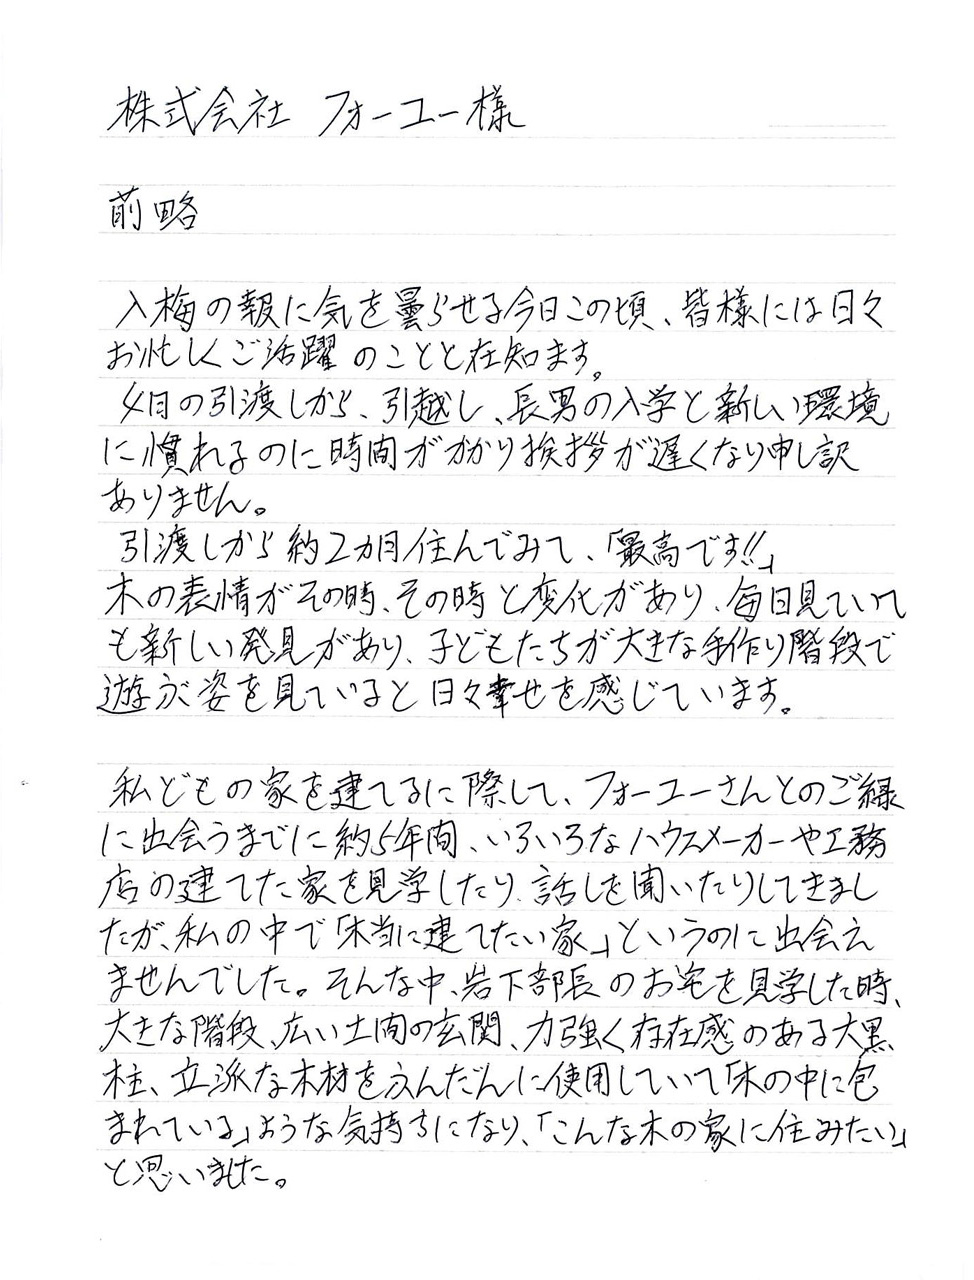 株式会社 フォーユー様
前略
入梅の報に気を曇らせる今日この頃、皆様には日々
お忙しくご活躍のことと在知ます。
4月の引渡しから、引越し、長男の入学と新しい環境
に慣れるのに時間がかかり挨拶が遅くなり申し訳
ありません。
引渡しから約2カ月住んでみて、「最高です!!」
木の表情がその時、その時と変化があり、毎日見ていて
も新しい発見があり、子どもたちが大きな手作り階段で
遊ぶ姿を見ていると日々幸せを感じています。
私どもの家を建てるに際して、フォーユーさんとのご縁
に出会うまでに約5年間、いろいろなハウスメーカーや工務
店の建てた家を見学したり、話しを聞いたりしてきまし
たが、私の中で「本当に建てたい家」というのに出会え
ませんでした。そんな中、岩下部長のお宅を見学した時、
大きな階段、広い土間の玄関、力強く存在感のある大黒
柱、立派な木材をふんだんに使用していて「木の中に包
まれている」ような気持ちになり、「こんな木の家に住みたい」
と思いました。